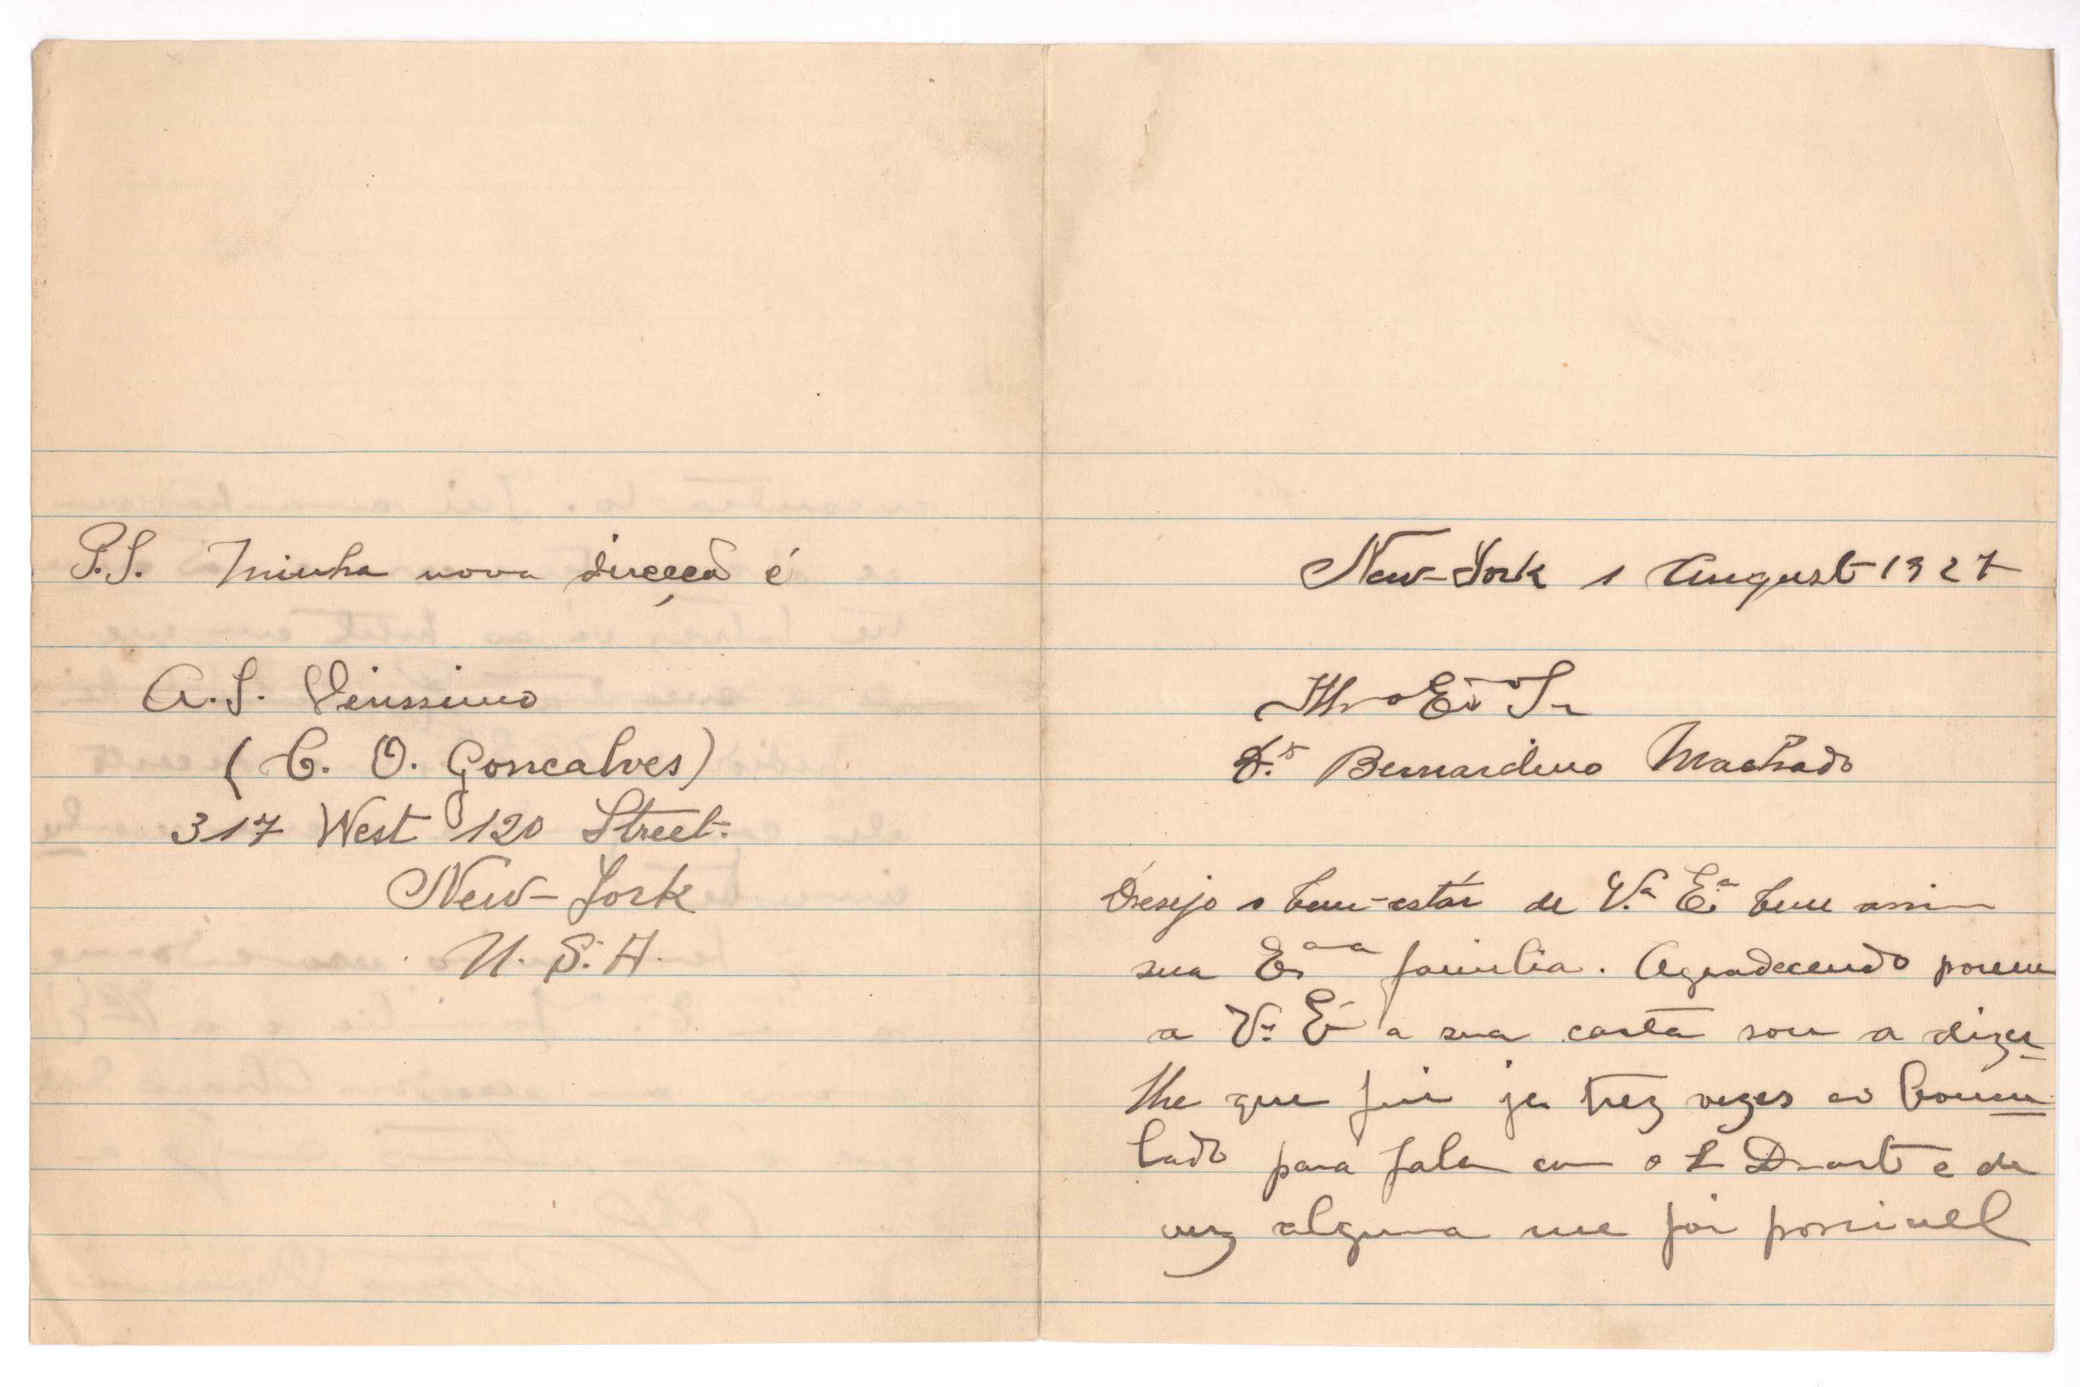 P.S. Minha nova direcçaõ é
A. S. Verissimo
(C. O. Goncalves)
317 West 120 Street.
New-York
U. S. A.
New-York 1 August 1927
Illmo Exmo Sr
Dr. Bernardino Machado
Desejo o bem-estár de V.ª Ex.ª bem assim
sua Exma familia. Agradecendo porem
a V.ª Ex.ª a sua carta sou a dizer-
lhe que fui ja trez vezes ao Consu-
lado para falar com o Sr Duarte e de
vez alguma me foi possivel